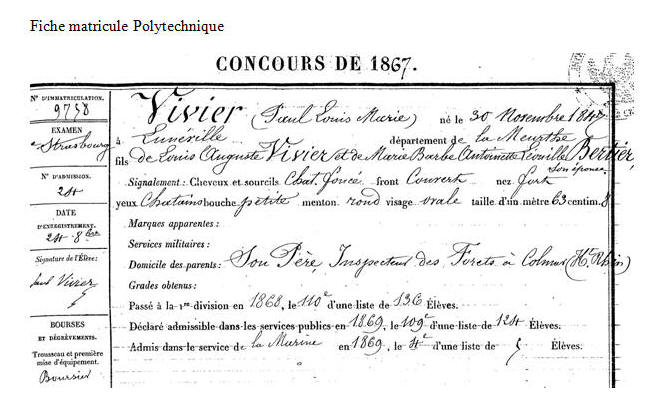 Fiche matricule Polytechnique
CONCOURS DE 1867.
N° D'IMMATRICULATION.
9758
EXAMEN
Strasbourg
N° D'ADMISSION.
24
DATE
D'ENREGISTREMENT.
24 8bre
Signature de l'Élève:
Paul Vivier
BOURSES
ET DÉGRÈVEMENTS.
Trousseau et première
mise d'équipement.
Boursier
Vivier (Paul Louis Marie) né le 30 Novembre 1848
à Lunéville département de la Meurthe
fils de Louis Auguste Vivier et de Marie Barbe Antoinette Léonille Bertier,
son épouse
Signalement: Cheveux et sourcils Chat. foncé front Couvert nez fort
yeux Chatains bouche petite menton rond visage ovale taille d'un mètre 63 centim. 8
Marques apparentes:
Services militaires:
Domicile des parents: Son Père, Inspecteur des Forets à Colmar (Ht Rhin)
Grades obtenus:
Passé à la 1re division en 1868, le 110e d'une liste de 136 Élèves.
Déclaré admissible dans les services publics en 1869, le 109e d'une liste de 124 Élèves.
Admis dans le service de la Marine en 1869, le 4e d'une liste de 5 Élèves.